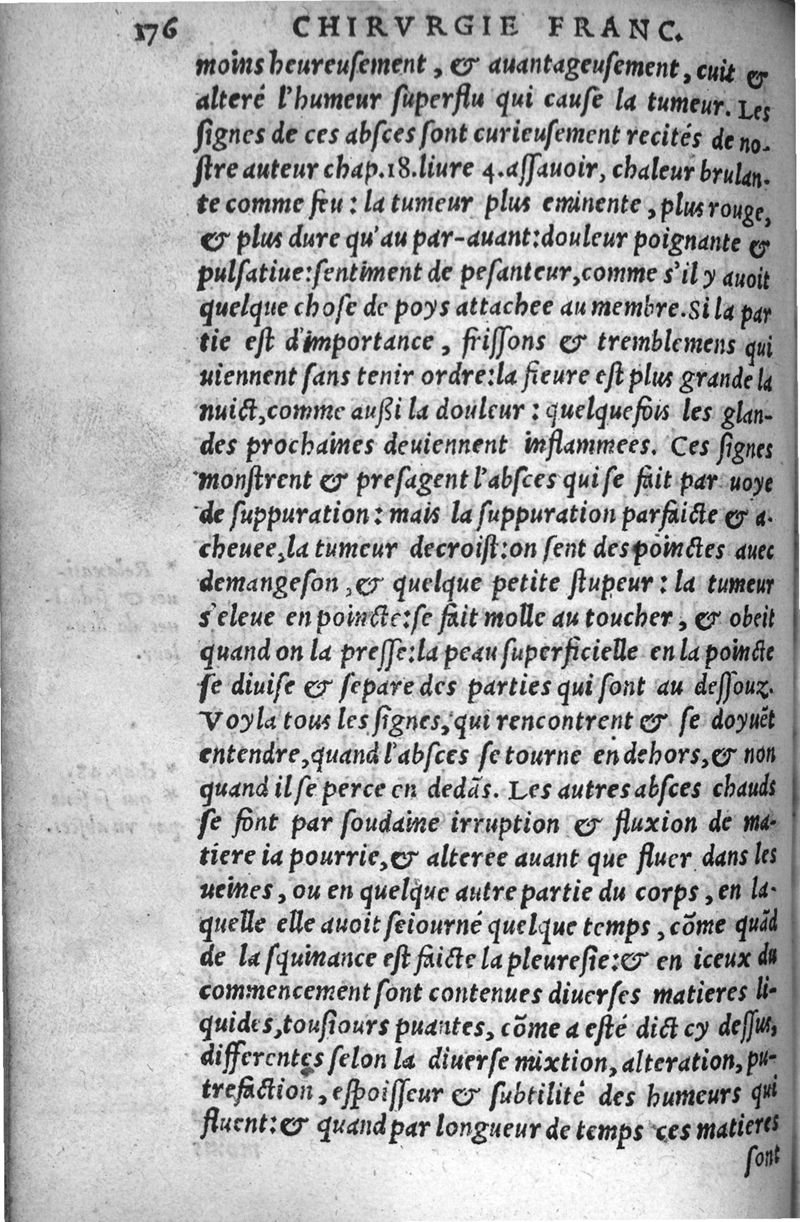 176 CHIRVRGIE FRANC.
moins heureusement, & auantageusement, cuit &
alteré l'humeur superflu qui cause la tumeur. Les
signes de ces absces sont curieusement recités de no-
stre auteur chap.18.liure 4.assauoir, chaleur brulan-
te comme feu : la tumeur plus eminente, plus rouge,
& plus dure qu'au par-auant:douleur poignante &
pulsatiue:sentiment de pesanteur,comme s'il y auoit
quelque chose de poys attachee au membre.Si la par
tie est d'importance, frissons & tremblemens qui
uiennent sans tenir ordre:la fieure est plus grande la
nuict,comme außi la douleur : quelquefois les glan-
des prochaines deuiennent inflammees. Ces signes
monstrent & presagent l'absces qui se fait par uoye
de suppuration : mais la suppuration parfaicte & a-
cheuee,la tumeur decroist:on sent des poinctes auec
demangeson, & quelque petite stupeur : la tumeur
s'eleue en poincte:se fait molle au toucher, & obeit
quand on la presse:la peau superficielle en la poincte
se diuise & separe des parties qui sont au dessouz.
Voyla tous les signes, qui rencontrent & se doyuẽt
entendre,quand l'absces se tourne en dehors,& non
quand il se perce en dedãs. Les autres absces chauds
se font par soudaine irruption & fluxion de ma-
tiere ia pourrie,& alteree auant que fluer dans les
ueines, ou en quelque autre partie du corps, en la-
quelle elle auoit seiourné quelque temps, cõme quãd
de la squinance est faicte la pleuresie:& en iceux du
commencement sont contenues diuerses matieres li-
quides,tousiours puantes, cõme a esté dict cy dessus,
differentes selon la diuerse mixtion, alteration, pu-
trefaction, espoisseur & subtilité des humeurs qui
fluent:& quand par longueur de temps ces matieres
sont